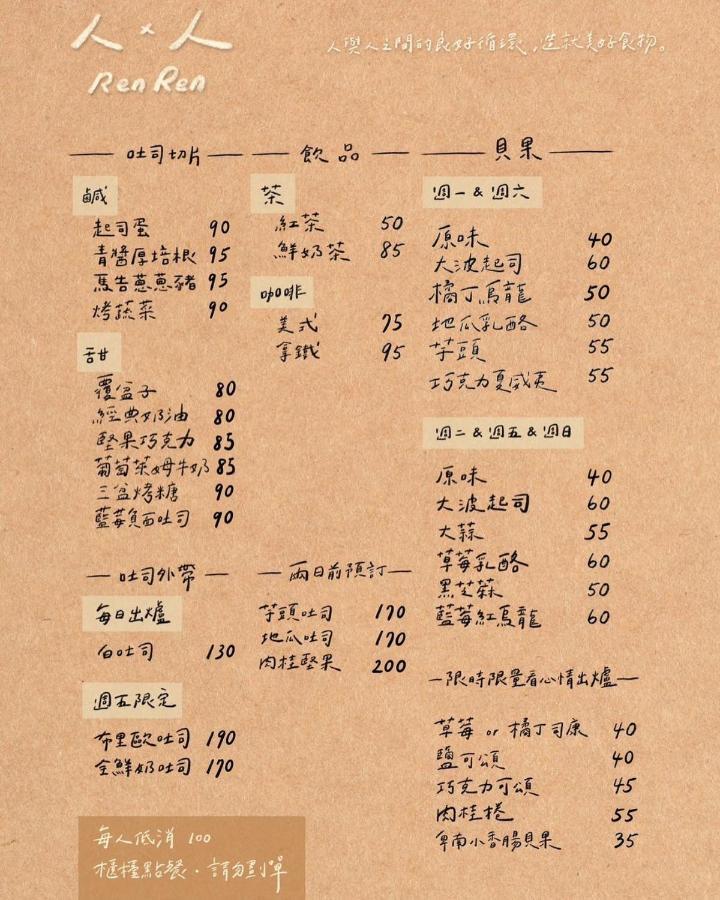 人×人
Ren Ren
人與人之間的良好循環,造就美好食物。
吐司切片
鹹
起司蛋 90
青醬厚培根 95
馬告蔥蔥豬 95
烤蔬菜 90
甜
覆盆子 80
經典奶油 80
堅果巧克力 85
葡萄萊姆牛奶 85
三盆烤糖 90
藍莓魚面吐司 90
飲品
茶
紅茶 50
鮮奶茶 85
咖啡
美式 75
拿鐵 95
貝果
週一&週六
原味 40
大波起司 60
橘丁烏龍 50
地瓜乳酪 50
芋頭 55
巧克力夏威夷 55
週二&週五&週日
原味 40
大波起司 60
大蒜 55
草莓乳酪 60
黑芝蔴 50
藍莓紅烏龍 60
吐司外帶
每日出爐
白吐司 130
週五限定
布里歐吐司 190
全鮮奶吐司 170
兩日前預訂
芋頭吐司 170
地瓜吐司 170
肉桂堅果 200
限時限量看心情出爐
草莓 or 橘丁司康 40
鹽可頌 40
巧克力可頌 45
肉桂捲 55
卑南小香腸貝果 35
每人低消 100
櫃檯點餐・請勿劃單